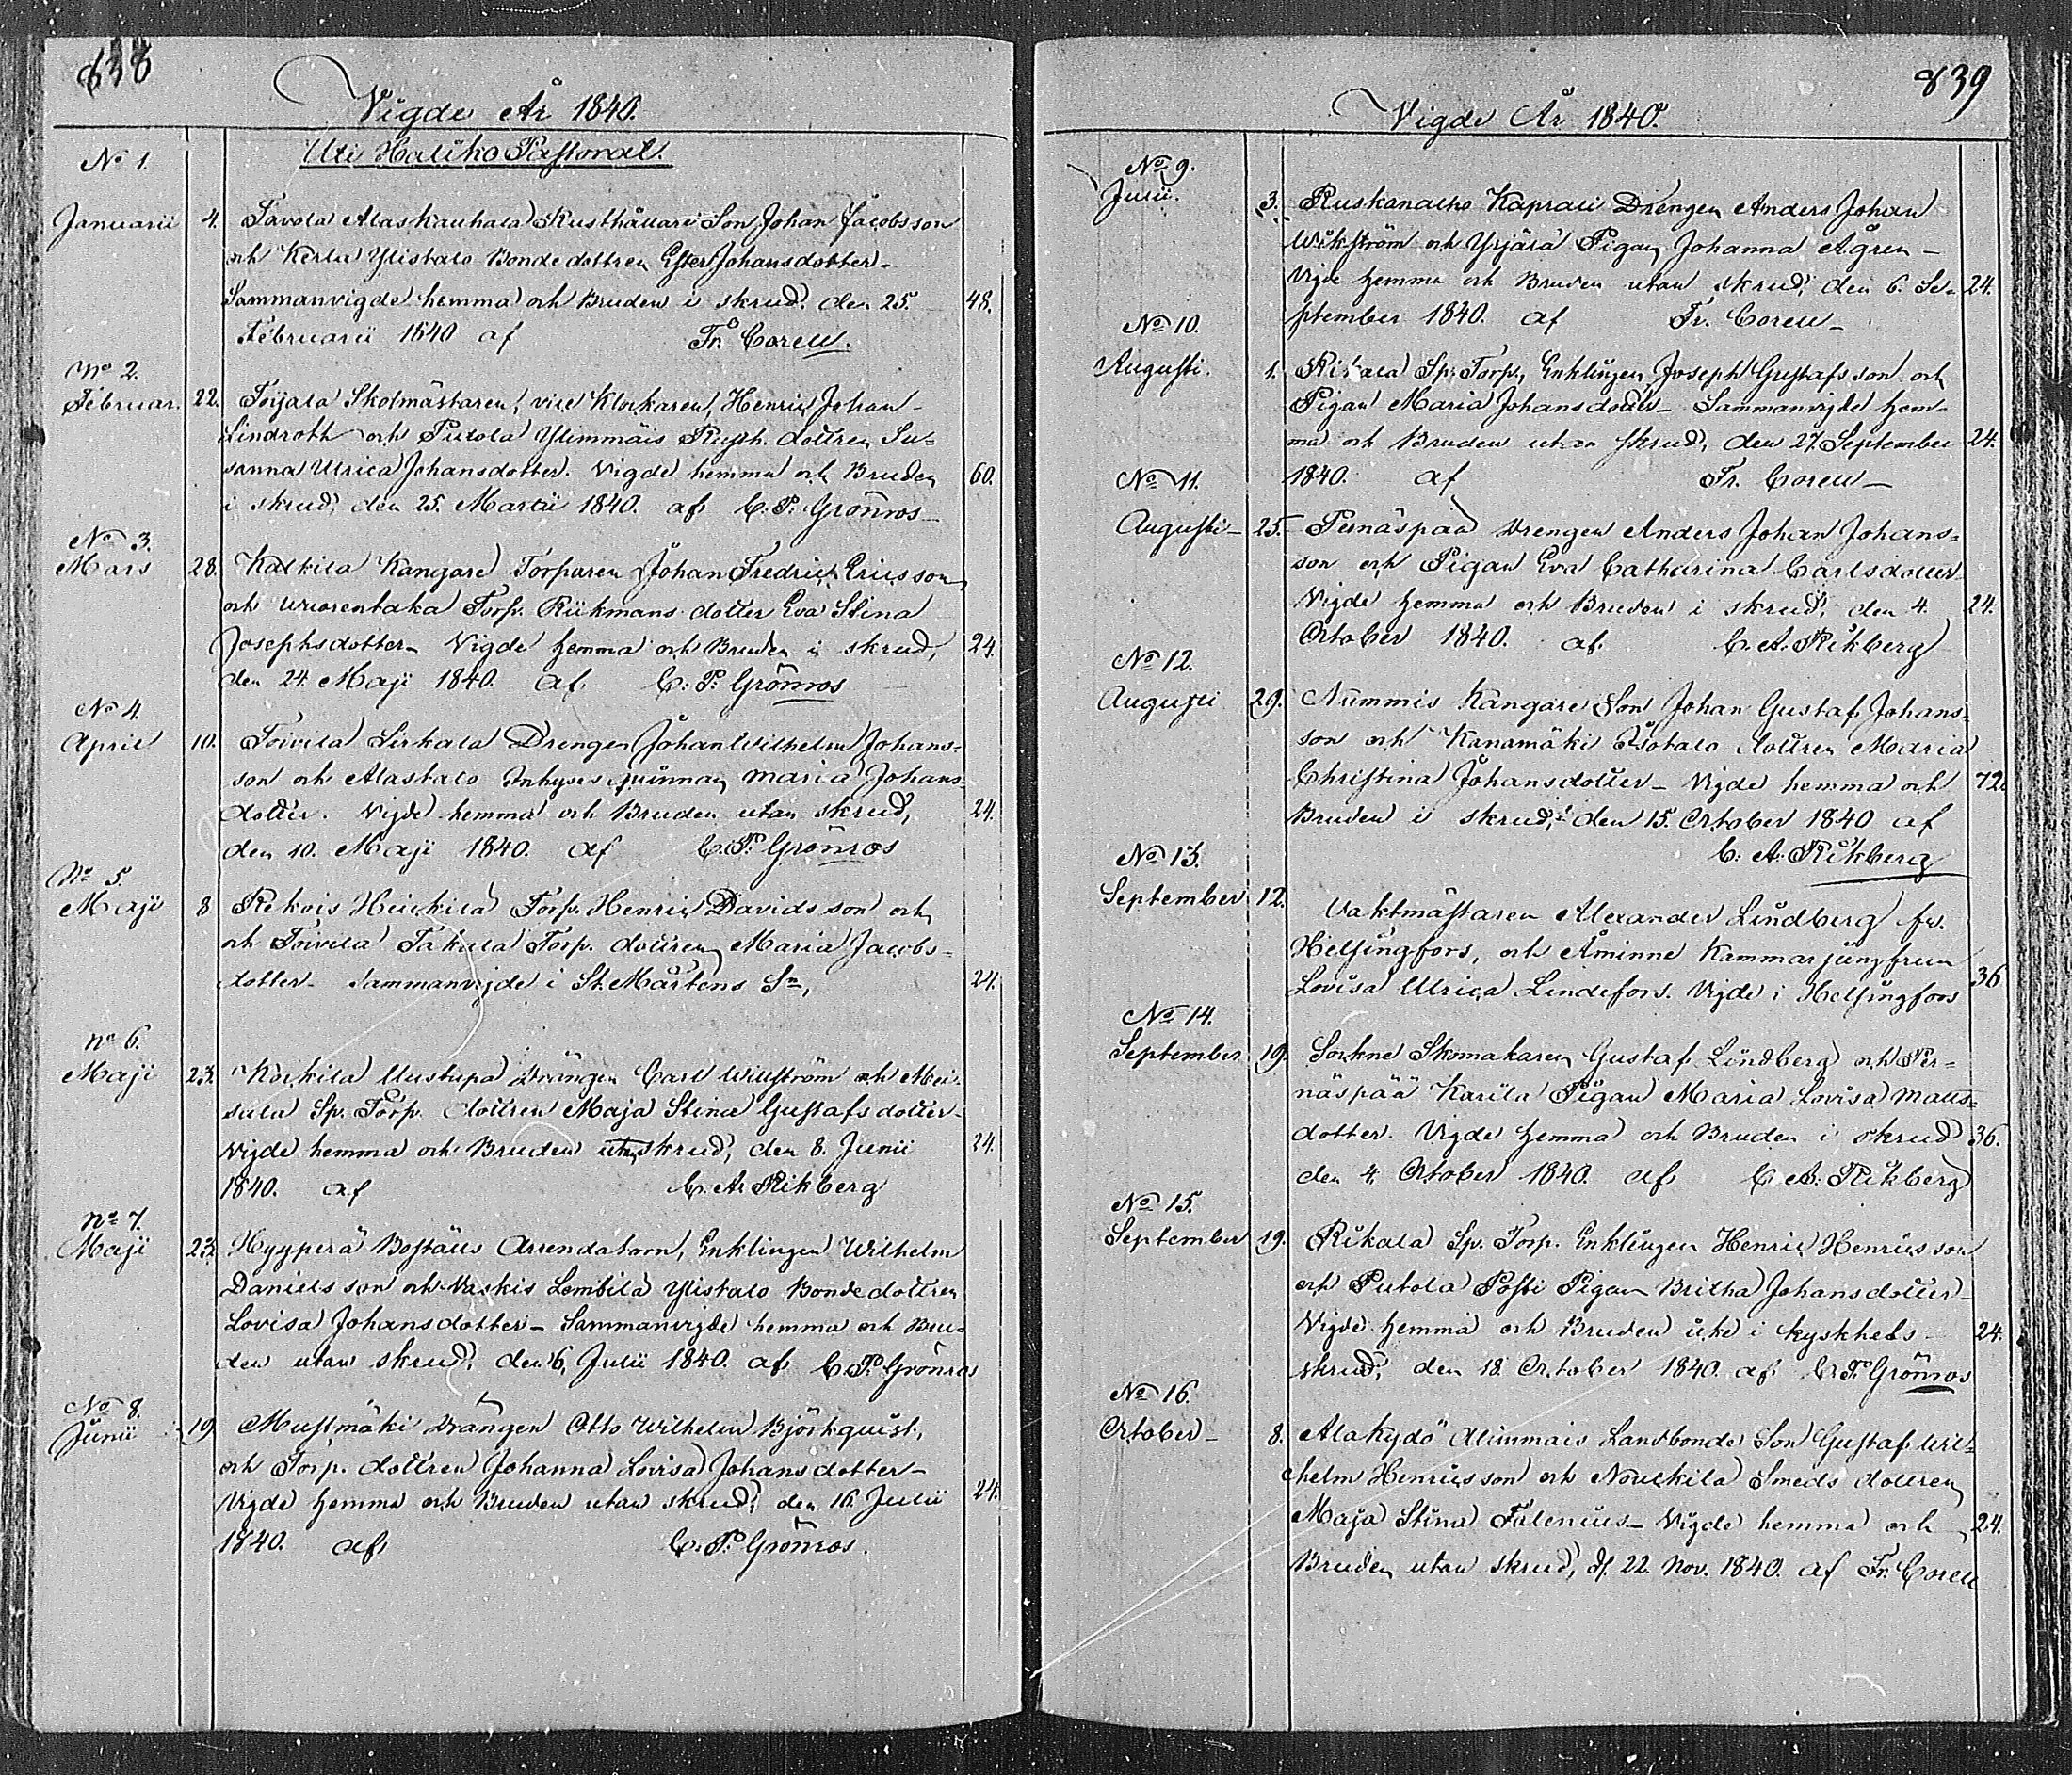 838
Vigde År 1840.
Uti Haliko Pastorat.
No 1.
Januarii 4. Tavola Alaskauhala Rusthållare Son Johan Jacobsson
och Kerla Ylistalo Bondedottren Ester Johansdotter -
Sammanvigde hemma och Bruden i skrud, den 25. 48.
Februarii 1840 af Fr. Corell.
No 2.
Februar. 22. Toijala Skolmästaren, vice Klockaren, Henric Johan
Lindroth och Putola Ylimmäis Rusth. dottren Su-
sanna Ulrica Johansdotter. Vigde hemma och Bruden 60.
i skrud, den 25. Martii 1840. af C. P. Grönros
No 3.
Mars 28. Kalkila Kangare Torparen Johan Fredrich Ericsson
och Wuorentaka Torp. Rükmans dotter Eva Stina
Josephsdotter - Vigde hemma och Bruden i skrud, 24.
den 24. Maji 1840. af C: P: Grönros
No 4.
April 10. Toivila Sirkala Drengen Johan Wilhelm Johans-
son och Alastalo Inhyses qvinnan Maria Johans-
dotter. Vigde hemma och Bruden utan skrud, 24.
den 10. Maji 1840. af C. P. Grönros
No 5.
Maji 8. Rekois Heickilä Torp. Henric Davidsson och
och Toivila Takala Torp. dottren Maria Jacobs-
dotter - Sammanvigde i St. Mårtens Sn, 24.
No 6.
Maji 23. Kockila Uustupa Drängen Carl Willström och Mei-
sula Sp. Torp. dottren Maja Stina Gustafsdotter -
Vigde hemma och Bruden utan skrud, den 8. Junii 24.
1840. af C. A. Rikberg
No 7.
Maji 23. Hyypperä Boställs Arrendatorn, Enklingen Wilhelm
Danielsson och Vaskis Lembilä Ylistalo Bondedottren
Lovisa Johansdotter - Sammanvigde hemma och Bru-
den utan skrud, den 6. Julii 1840. af C. P. Grönros
No 8.
Junii 19. Mustmäki Drängen Otto Wilhelm Björkquist,
och Torp. dottren Johanna Lovisa Johansdotter -
Vigde hemma och Bruden utan skrud, den 16. Julii 24.
1840. af C. P. Grönros.
839
Vigde År 1840.
No 9.
Julii. 3. Ruskanatko Kaprali Drengen Anders Johan
Wikström och Yrjälä Pigan Johanna Ågren -
Vigde hemma och Bruden utan skrud, den 6. Se- 24.
ptember 1840. af Fr. Corell -
No 10.
Augusti. 1. Rikala Sp. Torp., Enklingen Joseph Gustafsson och
Pigan Maria Johansdotter - Sammanvigde hem-
ma och Bruden utan skrud, den 27. September 24.
1840. af Fr. Corell -
No 11.
Augusti - 25. Pernäspää Drengen Anders Johan Johans-
son och Pigan Eva Catharina Carlsdotter
Vigde hemma och Bruden i skrud, den 4. 24.
October 1840. af C. A. Rikberg
No 12.
Augusti 29. Nummis Kangare Son Johan Gustaf Johans-
son och Kanamäki Isotalo dottren Maria
Christina Johansdotter - Vigde hemma och 72.
Bruden i skrud, den 15. October 1840 af
C: A: Rikberg
No 13.
September 12. Vaktmästaren Alexander Lindberg fr.
Helsingfors, och Åminne Kammarjungfrun
Lovisa Ulrica Lindefors. Vigde i Helsingfors 36
No 14.
September 19. Sockne Skomakaren Gustaf Lindberg och Per-
näspää Karila Pigan Maria Lovisa Matts-
dotter. Vigde hemma och Bruden i skrud 36.
den 4. October 1840. af C. A. Rikberg
No 15.
September 19. Rikala Sp. Torp. Enklingen Henric Henricsson
och Putola Posti Pigan Britha Johansdotter -
Vigde hemma och Bruden icke i kyskhets- 24.
skrud, den 18. October 1840. af C. P. Grönros
No 16.
October - 8. Alakydö Alimmais Landbonde Son Gustaf Wil-
helm Henricsson och Nouckila Smeds dottren
Maja Stina Falenius - Vigde hemma och 24.
Bruden utan skrud, d. 22. Nov. 1840. af Fr. Corell